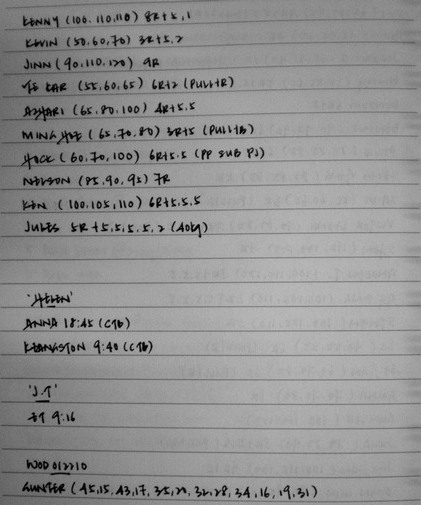 KENNY (100, 110, 110) 8R+5, 1
KEVIN (50, 60, 70) 3R+5, 2
JINN (90, 110, 120) 9R
KAR (55, 60, 65) 6R+2 (PULL+R)
AZHARI (65, 80, 100) 4R+5, 5
MING HOE (65, 70, 80) 3R+5 (PULL+B)
HOCK (60, 70, 100) 6R+5, 5 (PP SUB PJ)
NELSON (85, 90, 95) 7R
KEN (100, 105, 110) 6R+5, 5, 5
JULES 5R+5, 5, 5, 5, 2 (40kg)
'HELEN'
ANNA 18:45 (CTB)
KEANGSTON 9:40 (CTB)
'J.T'
JT 9:16
WOD 012210
GUNTER (45, 15, 43, 17, 35, 21, 32, 28, 34, 16, 19, 31)